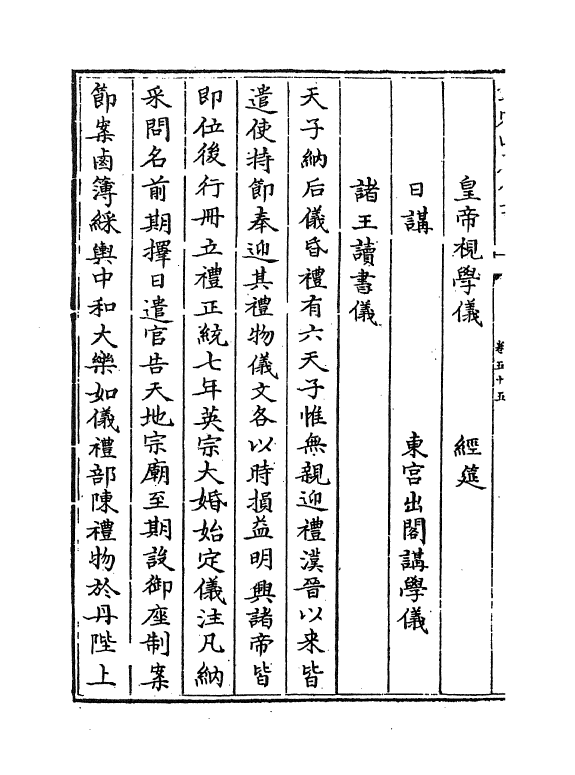 卷五十五
皇帝視學儀　經筵
日講　東宮出閣講學儀
諸王讀書儀
天子納后儀昏禮有六天子惟無親迎禮漢晉以來皆
遣使持節奉迎其禮物儀文各以時損益明興諸帝皆
即位後行冊立禮正統七年英宗大婚始定儀注凡納
采問名前期擇日遣官告天地宗廟至期設御座制案
節案鹵簿綵輿中和大樂如儀禮部陳禮物於丹陛上